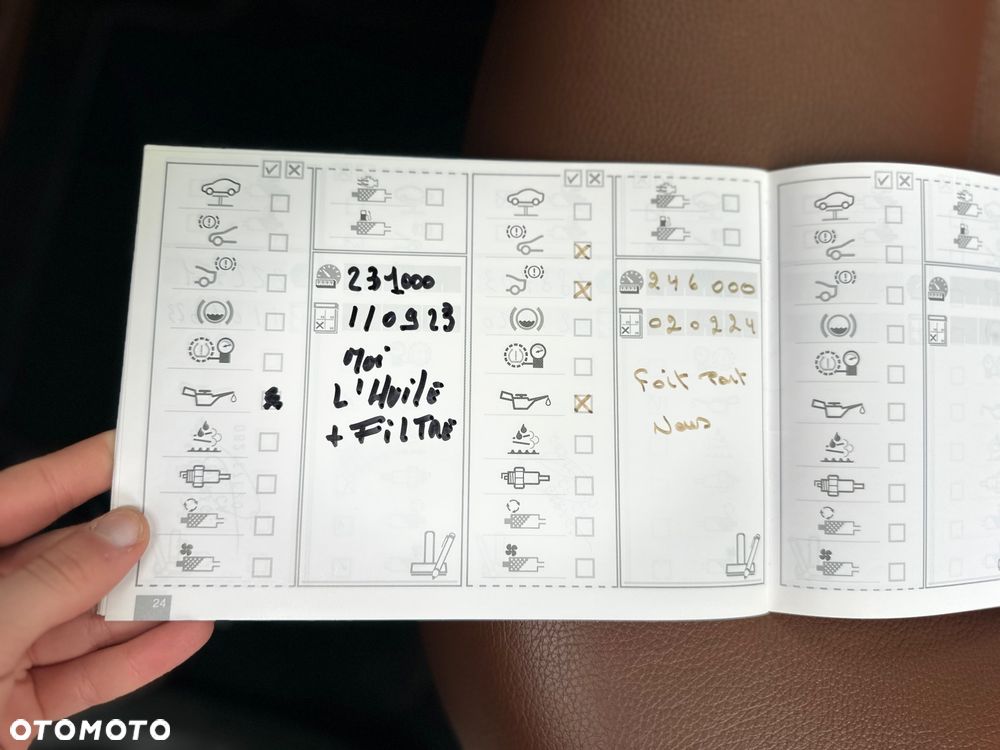 231000
110923
Moi
L'Huile
+ FiLTRE
246000
020224
Fait Part
Nous
24
OTOMOTO